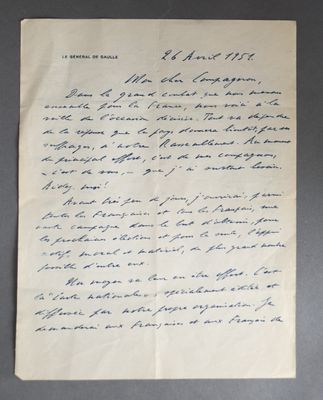 LE GÉNÉRAL DE GAULLE
26 Avril 1951.
Mon cher Compagnon,
Dans le grand combat que nous menons
ensemble pour la France, nous voici à la
veille de l'occasion décisive. Tout va dépendre
de la réponse que le pays donnera bientôt, par ses
suffrages, à notre Rassemblement. Au moment
du principal effort, c'est de mes compagnons,
c'est de vous, que j'ai surtout besoin.
Aidez-moi!
Avant très peu de jours, j'ouvrirai, parmi
toutes les Françaises et tous les Français, une
vaste campagne dans le but d'obtenir, pour
les prochaines élections et pour la suite, l'appui
moral et matériel, du plus grand nombre
possible d'entre eux.
Un moyen va leur en être offert. C'est
la "Carte nationale", spécialement éditée et
diffusée par notre propre organisation. Je
demanderai aux Françaises et aux Français de